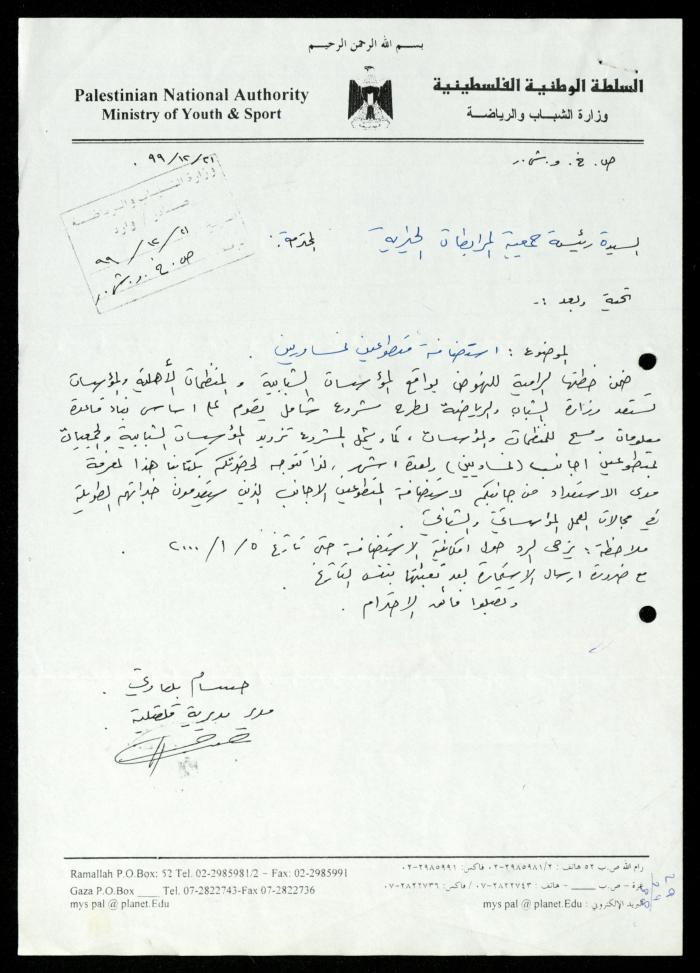 بسم الله الرحمن الرحيم
السلطة الوطنية الفلسطينية
وزارة الشباب والرياضة
Palestinian National Authority
Ministry of Youth & Sport
ص. خ. و. ش. ر
٩٩/١٢/٢١
وزارة الشباب والرياضة
صادر / وارد
٩٩/١٢/٢١
ص. خ. و. ش. ر
السيدة رئيسة جمعية المرابطات الخيرية المحترمة:
تحية وبعد :-
الموضوع : استضافة متطوعين نمساويين .
ضمن خطتها الرامية للنهوض بواقع المؤسسات الشبابية و المنظمات الأهلية والمؤسسات
تستعد وزارة الشباب والرياضة لطرح مشروع شامل يقوم على اساس بناء قاعدة
معلومات ومسح للمنظمات والمؤسسات ، كما ويشمل المشروع تزويد المؤسسات الشبابية والجمعيات
بمتطوعين اجانب (نمساويين) ولعدة اشهر ، لذا نتوجه لحضرتكم بكتابنا هذا لمعرفة
مدى الاستعداد من جانبكم لاستضافة المتطوعين الاجانب الذين سيقدمون خبراتهم الطويلة
في مجالات العمل المؤسساتي والشبابي .
ملاحظة : يرجى الرد حول امكانية الاستضافة حتى تاريخ ٢٠٠٠/١/٥
مع ضرورة ارسال الاستمارة بعد تعبئتها بنفس التاريخ .
وتقبلوا فائق الاحترام .
مدير مديرية قلقيلية
رام الله ص.ب ٥٢ هاتف : ٢/٢٩٨٥٩٨١-٠٢ فاكس: ٢٩٨٥٩٩١-٠٢
غزة - ص.ب ____ - هاتف : ٢٨٢٢٧٤٣-٠٧ / فاكس: ٢٨٢٢٧٣٦-٠٧
البريد الإلكتروني : mys pal @ planet.Edu
Ramallah P.O.Box: 52 Tel. 02-2985981/2 – Fax: 02-2985991
Gaza P.O.Box ____ Tel. 07-2822743-Fax 07-2822736
mys pal @ planet.Edu